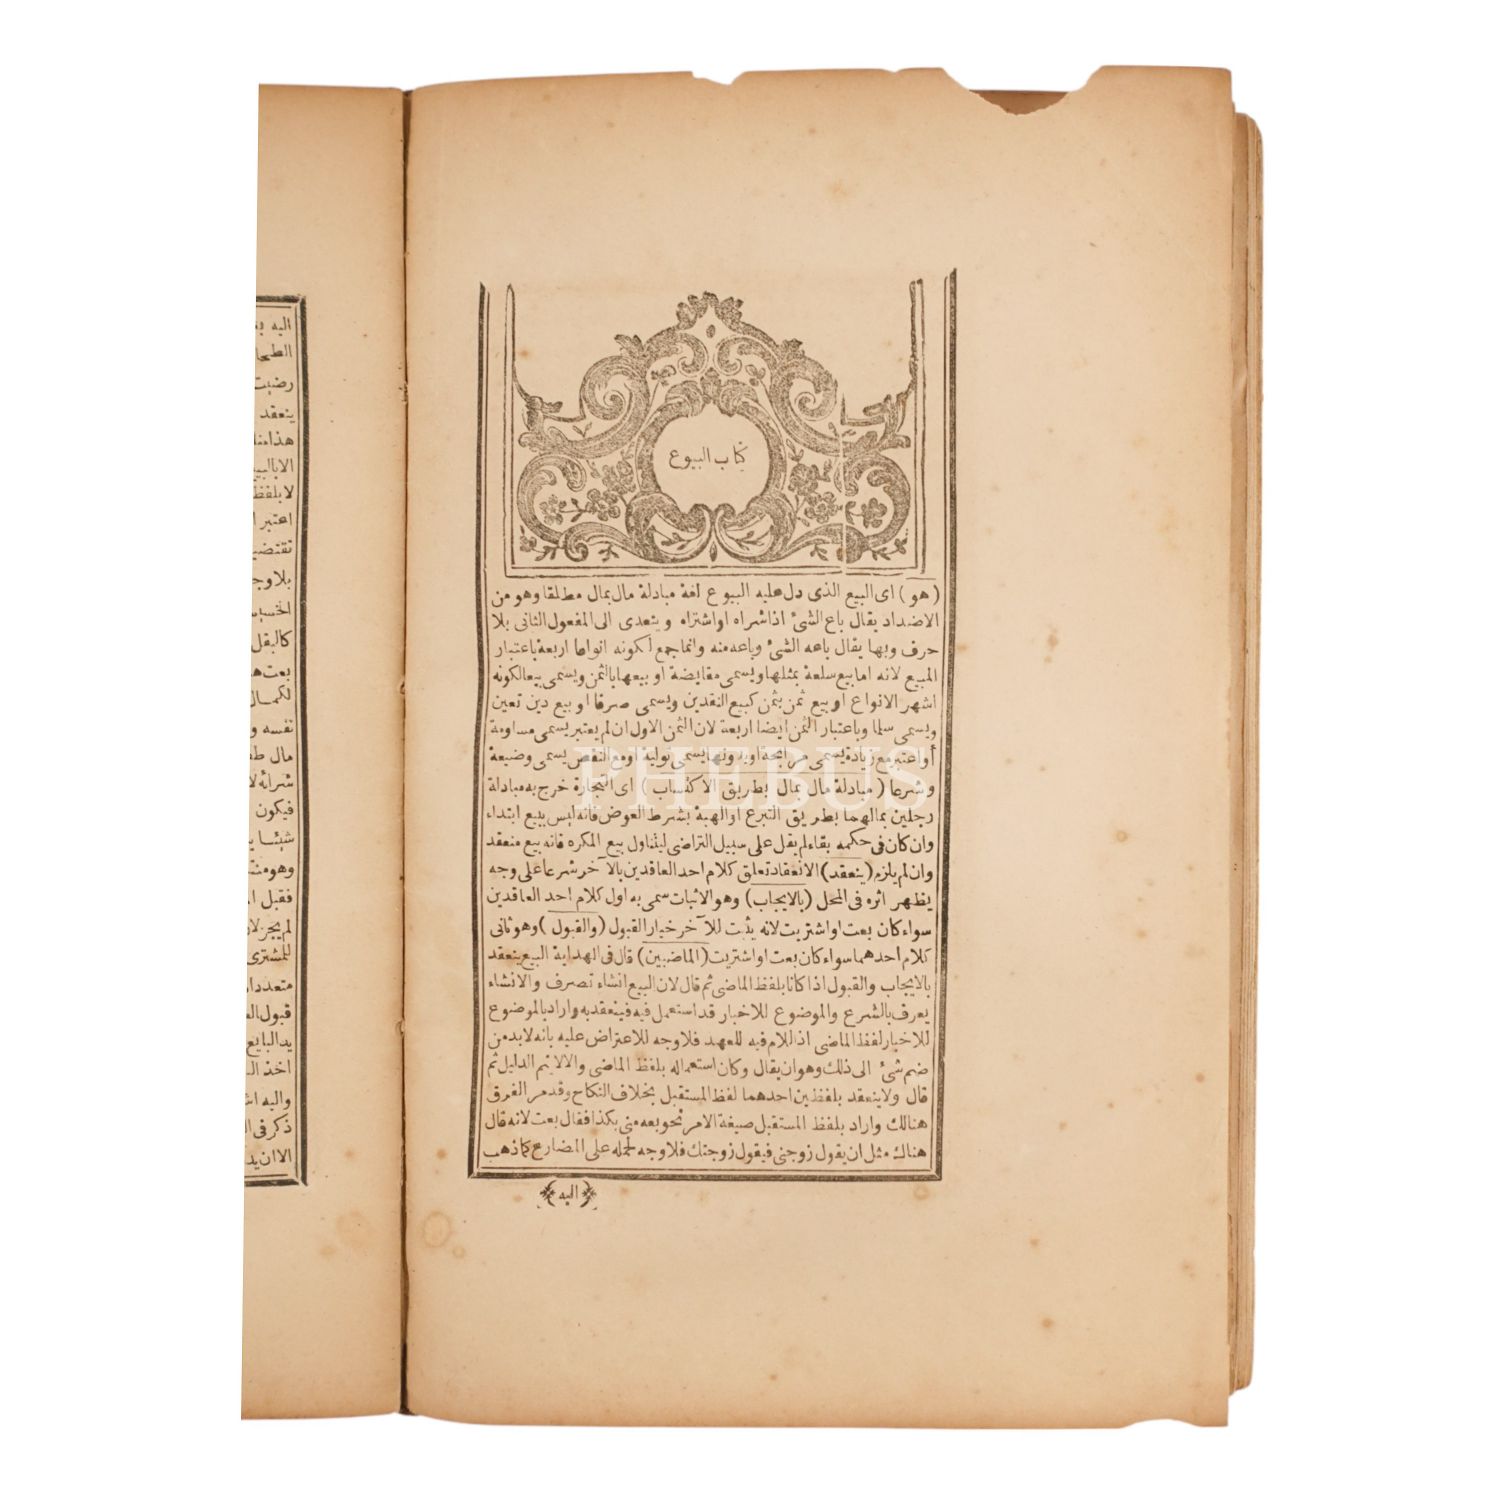 كتاب البيوع
(هو) اى البيع الذى دل عليه البيوع لغة مبادلة مال بمال مطلقا وهو من
الاضداد يقال باع الشئ اذا شراه او اشتراه ويتعدى الى المفعول الثانى بلا
حرف وبها يقال باعه الشئ وباعه منه وانما جمع لكونه انواعا اربعة باعتبار
المبيع لانه اما بيع سلعة بمثلها ويسمى مقايضة او بيعها بالثمن ويسمى بيعا لكونه
اشهر الانواع او بيع ثمن بثمن كبيع النقدين ويسمى صرفا او بيع دين بعين
ويسمى سلما وباعتبار الثمن ايضا اربعة لان الثمن الاول ان لم يعتبر يسمى مساومة
أو اعتبر مع زيادة يسمى مرابحة او بدونها يسمى تولية او مع النقص يسمى وضيعة
وشرعا (مبادلة مال بمال بطريق الاكتساب) اى التجارة خرج به مبادلة
رجلين بمالهما بطريق التبرع او الهبة بشرط العوض فانه ليس ببيع ابتداء
وان كان فى حكمه بقاء لم يقل على سبيل التراضى ليتناول بيع المكره فانه بيع منعقد
وان لم يلزم (ينعقد) الانعقاد تعلق كلام احد العاقدين بالآخر شرعا على وجه
يظهر اثره فى المحل (بالايجاب) وهو الاثبات سمى به اول كلام احد العاقدين
سواء كان بعت او اشتريت لانه يثبت للآخر خيار القبول (والقبول) وهو ثانى
كلام احدهما سواء كان بعت او اشتريت (الماضيين) قال فى الهداية البيع ينعقد
بالايجاب والقبول اذا كانا بلفظ الماضى ثم قال لان البيع انشاء تصرف والانشاء
يعرف بالشرع والموضوع للاخبار قد استعمل فيه فينعقد به واراد بالموضوع
للاخبار لفظ الماضى اذ اللام فيه للعهد فلا وجه للاعتراض عليه بانه لابد من
ضم شئ الى ذلك وهو ان يقال وكان استعماله بلفظ الماضى والا لا يتم الدليل ثم
قال ولا ينعقد بلفظين احدهما لفظ المستقبل بخلاف النكاح وقد مر الفرق
هنالك واراد بلفظ المستقبل صيغة الامر نحو بعه منى بكذا فقال بعت لانه قال
هناك مثل ان يقول زوجنى فيقول زوجتك فلا وجه لحمله على المضارع كما ذهب
(اليه)
PHEBUS
اليه
الطحا
رضيت
ينعقد
هذا منه
الا بالبيع
لا بلفظ
اعتبر ا
تقتضي
بلا وجـ
الخسيس
كالبقل
بعت هـ
لكمال
نفسه و
مال
شرائه لا
فيكون
شيئا
وهو مشتـ
فقبل ا
لم يجز لان
للمشترى
متعددا
قبول الـ
يد البايع
اخذ الـ
واليه اشـ
ذكر فى الـ
الا ان يـ